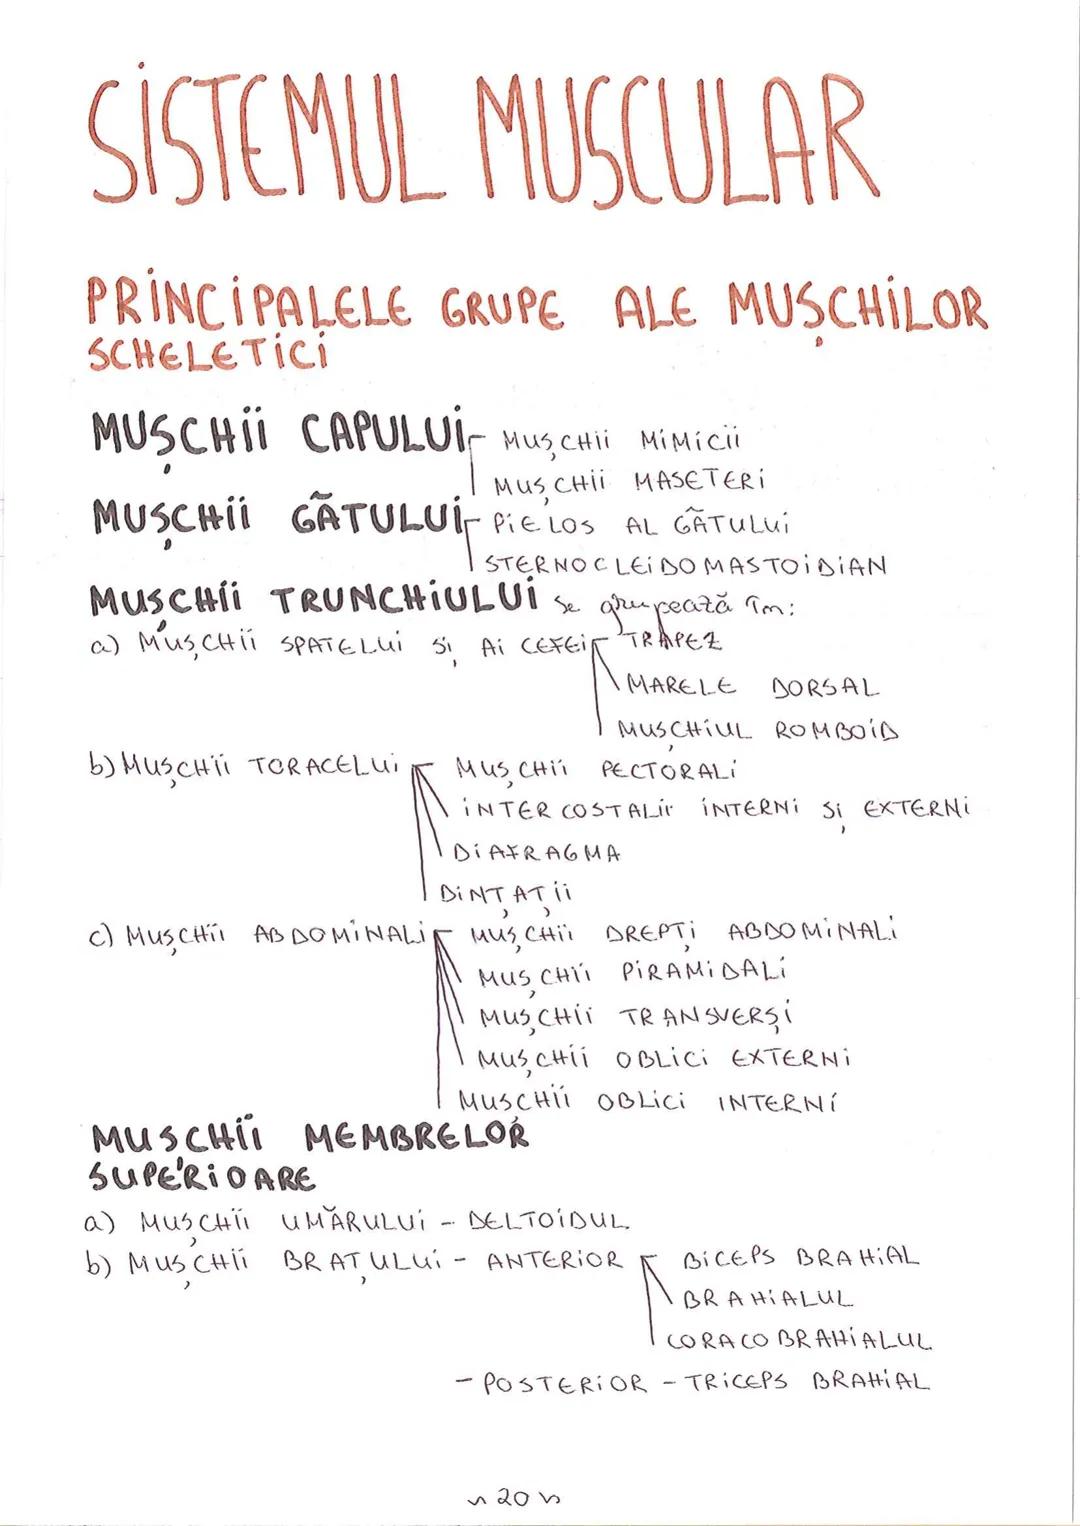 SISTEMUL MUSCULAR
PRINCIPALELE GRUPE ALE MUȘCHILOR
SCHELETICI
MUȘCHII CAPULUI MUȘCHII MIMICII
MUȘCHII MASETERI
MUȘCHII GÂTULUI PIELOS AL GÂTULUI
STERNOCLEIDOMASTOIDIAN
MUȘCHII TRUNCHIULUI se grupează în:
a) MUȘCHII SPATELUI ȘI AI CEFEI TRAPEZ
MARELE DORSAL
MUȘCHIUL ROMBOID
b) MUȘCHII TORACELUI MUȘCHII PECTORALI
INTERCOSTALII INTERNI ȘI EXTERNI
DIAFRAGMA
DINȚAȚII
c) MUȘCHII ABDOMINALI MUȘCHII DREPȚI ABDOMINALI
MUȘCHII PIRAMIDALI
MUȘCHII TRANSVERȘI
MUȘCHII OBLICI EXTERNI
MUSCHII OBLICI INTERNI
MUȘCHII MEMBRELOR
SUPERIOARE
a) MUȘCHII UMĂRULUI - DELTOIDUL
b) MUȘCHII BRAȚULUI - ANTERIOR BICEPS BRAHIAL
BRAHIALUL
CORACOBRAHIALUL
- POSTERIOR - TRICEPS BRAHIAL
~ 20 ~